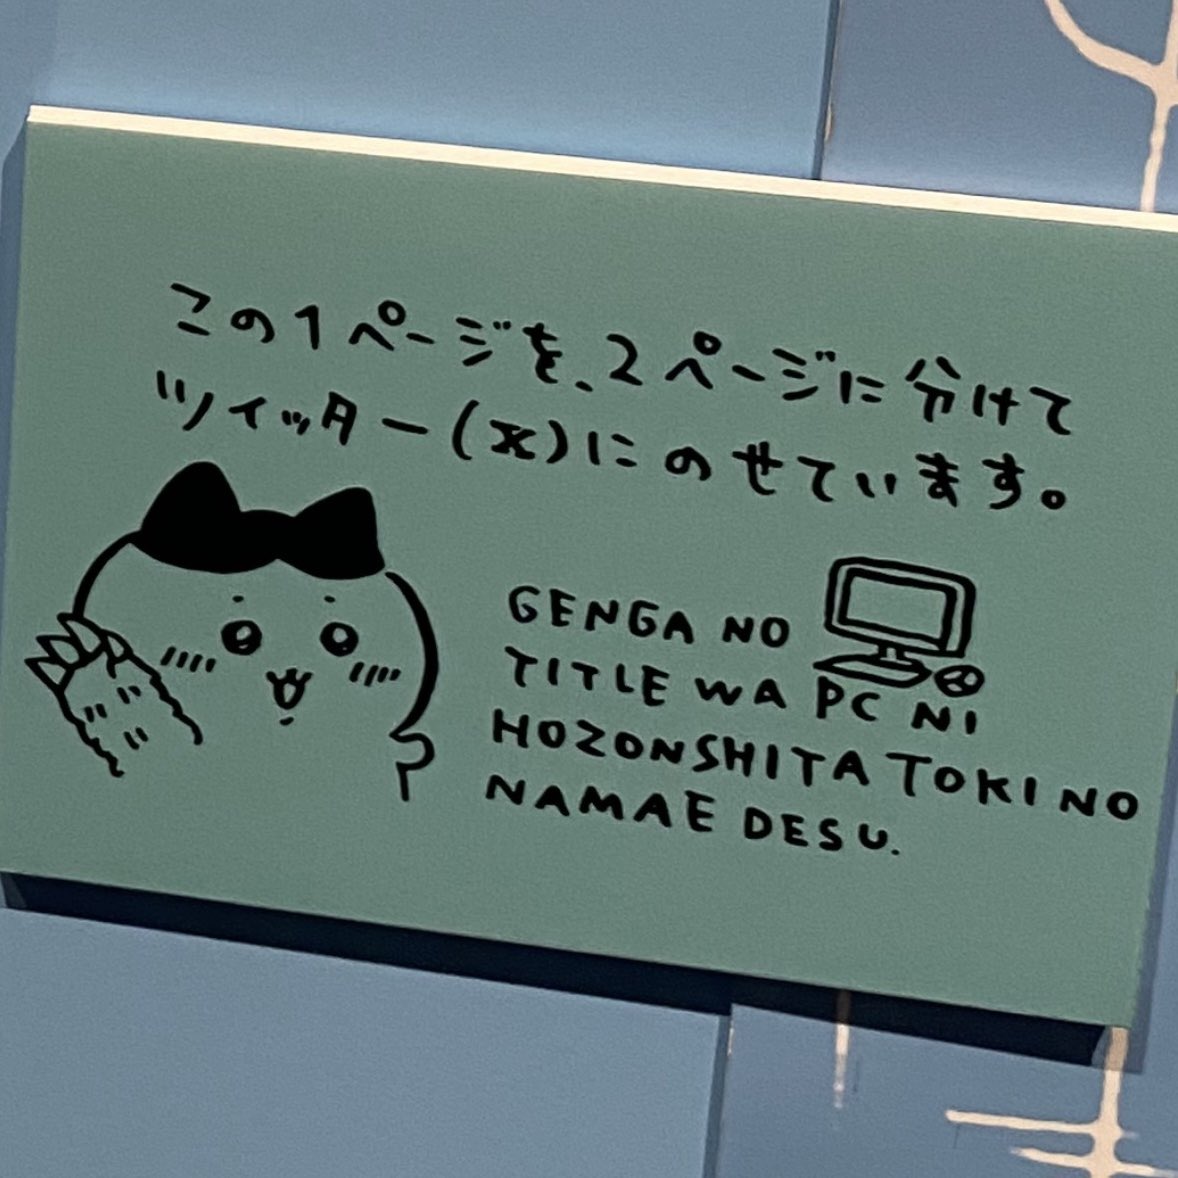 この1ページを、2ページに分けて
ツイッター(X)にのせています。
GENGA NO
TITLE WA PC NI
HOZONSHITA TOKI NO
NAMAE DESU.